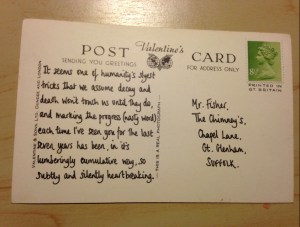 POST Valentine's CARD
SENDING YOU GREETINGS!
FOR ADDRESS ONLY
PRINTED IN
GT BRITAIN
VALENTINE & SONS, LTD. DUNDEE AND LONDON
THIS IS A REAL PHOTOGRAPH
It seems one of humanity's slyest
tricks that we assume decay and
death won't touch us until they do,
and marking the progress (nasty word)
each time I've seen you for the last
seven years has been, in it's
lumberingly cumulative way, so
subtly and silently heartbreaking.
Mr. Fisher,
The Chimney's,
Chapel Lane,
Gt. Glenham,
SUFFOLK.